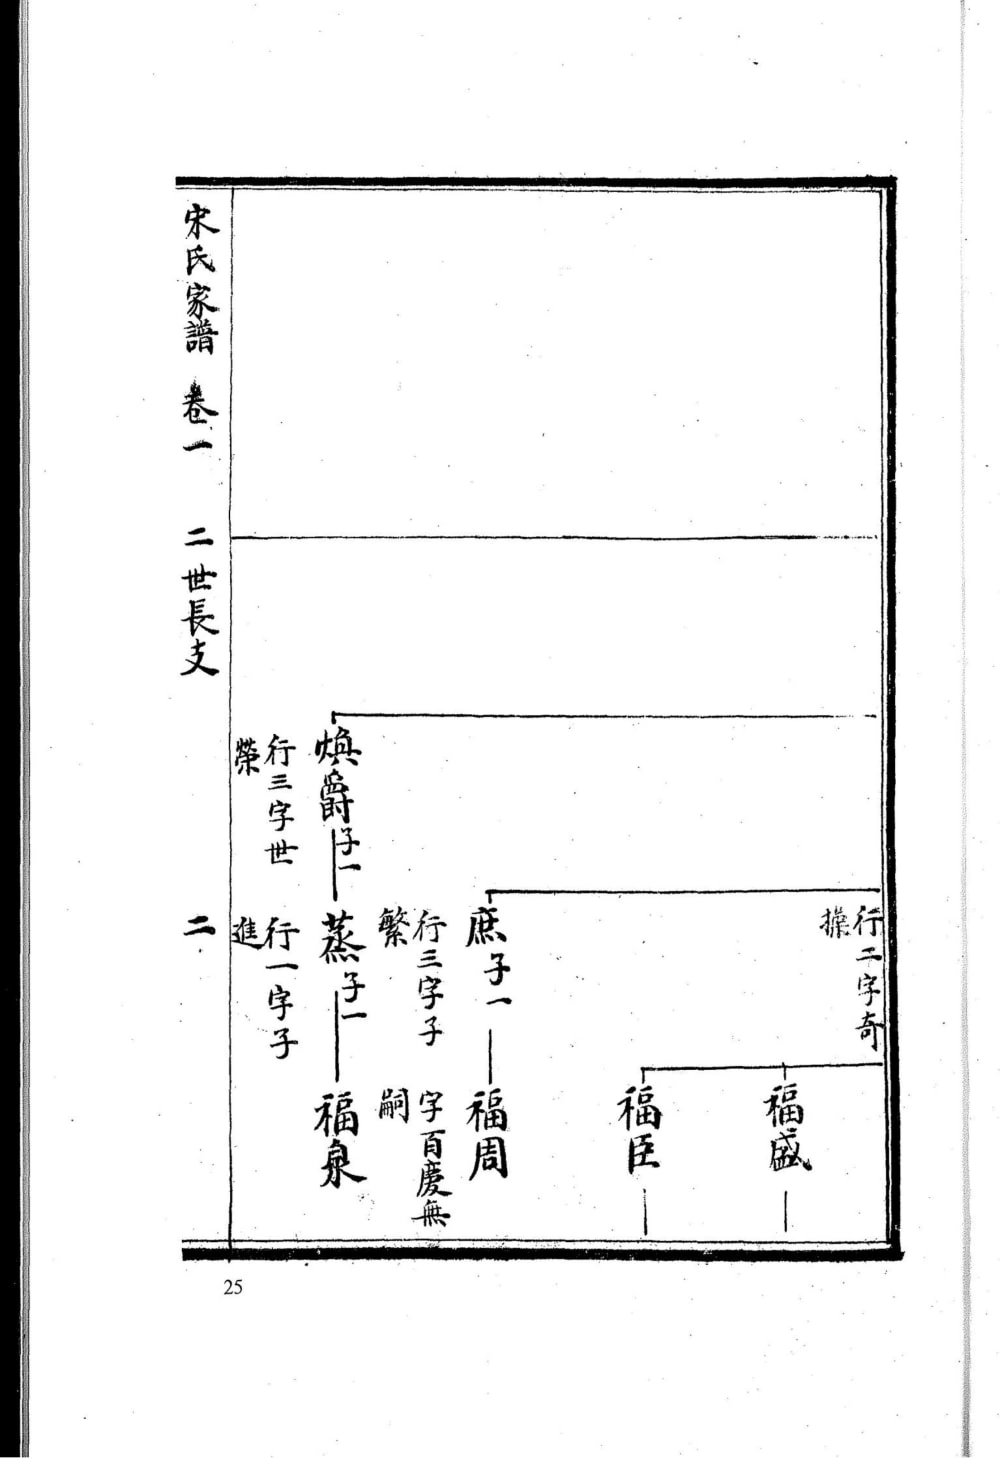 行二字奇
操
福盛
福臣
庶子一
福周
行三字子
繁
字百慶無
嗣
煥爵子一
蒸子一
福泉
行三字世
榮
行一字子
進
宋氏家譜 卷一 二世長支 二
25